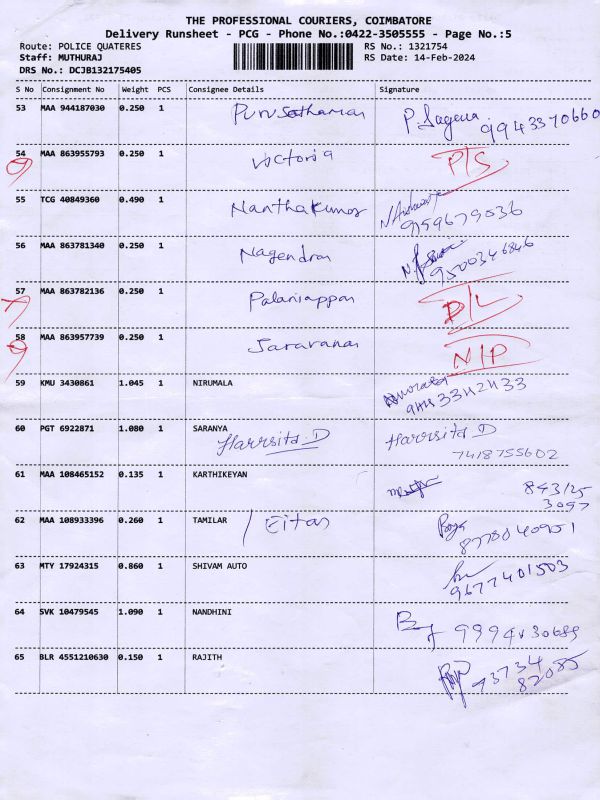 THE PROFESSIONAL COURIERS, COIMBATORE
Delivery Runsheet - PCG - Phone No.:0422-3505555 - Page No.:5
Route: POLICE QUATERES RS No.: 1321754
Staff: MUTHURAJ RS Date: 14-Feb-2024
DRS No.: DCJB132175405
S No Consignment No Weight PCS Consignee Details Signature
53 MAA 944187030 0.250 1 Purusothaman P. 9943370660
54 MAA 863955793 0.250 1 victoria P/S
55 TCG 40849360 0.490 1 Nanthakumar 9159679036
56 MAA 863781340 0.250 1 Nagendran 9500346846
57 MAA 863782136 0.250 1 Palaniappan D/L
58 MAA 863957739 0.250 1 Saravanan N/P
59 KMU 3430861 1.045 1 NIRUMALA
60 PGT 6922871 1.080 1 SARANYA
Harrsita.D Harrsita D
7418755602
61 MAA 108465152 0.135 1 KARTHIKEYAN 843125
3097
62 MAA 108933396 0.260 1 TAMILAR
63 MTY 17924315 0.860 1 SHIVAM AUTO 9677401503
64 SVK 10479545 1.090 1 NANDHINI
65 BLR 4551210630 0.150 1 RAJITH 73734
82085